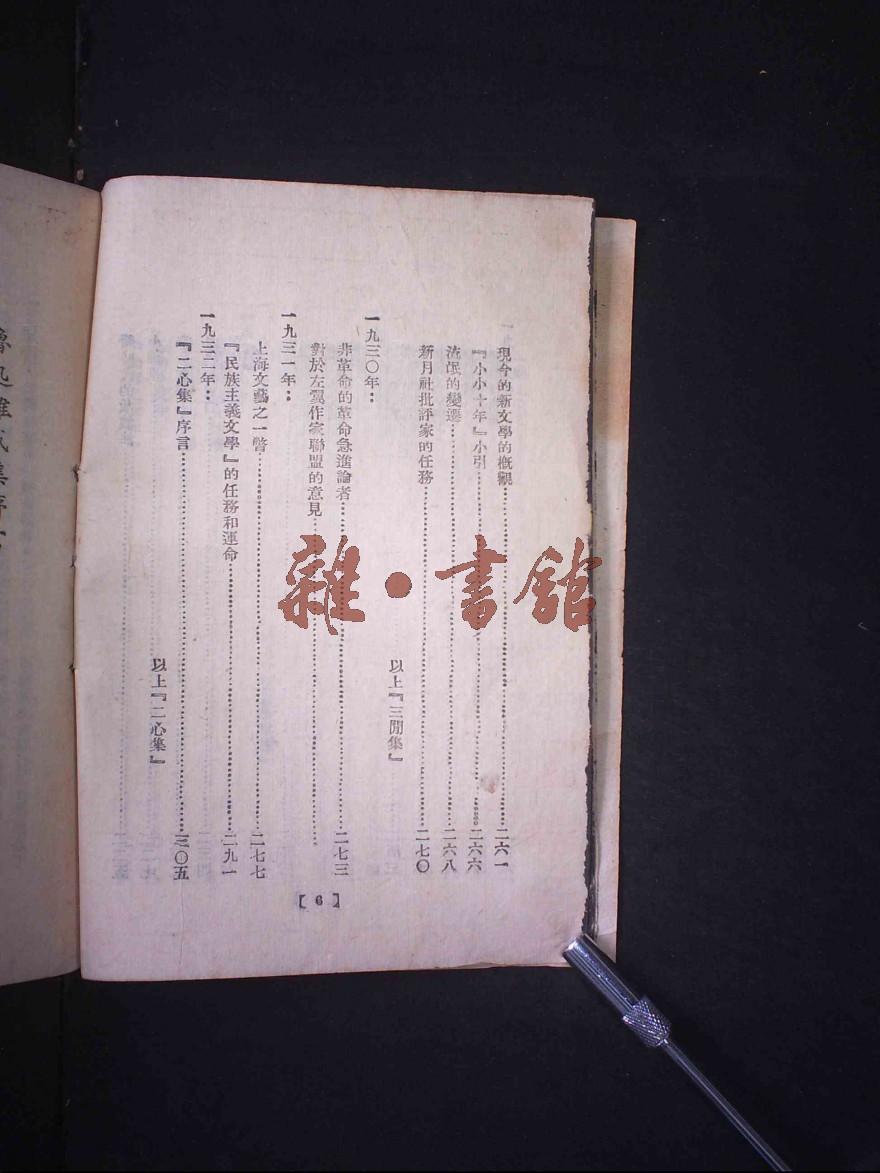 現今的新文學的概觀……二六一
『小小十年』小引……二六六
流氓的變遷……二六八
新月社批評家的任務……二七〇
以上『三閒集』
一九三〇年：
非革命的革命急進論者……二七三
對於左翼作家聯盟的意見……
一九三一年：
上海文藝之一瞥……二七七
『民族主義文學』的任務和運命……二九一
一九三二年：
『二心集』序言……三〇五
以上『二心集』
【6】
雜·書館